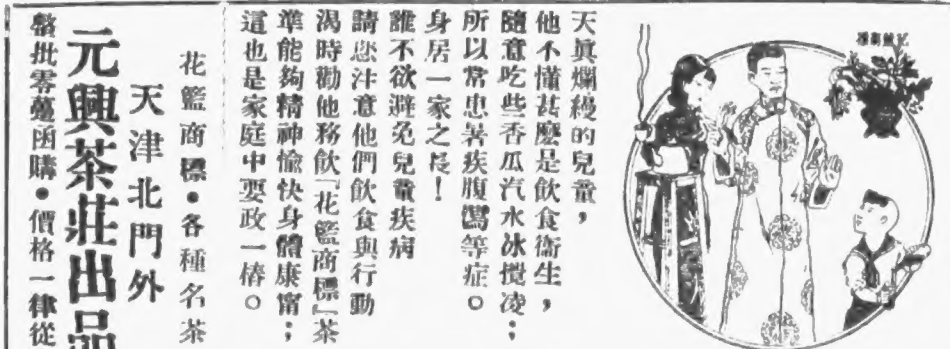 花籃商標
天眞爛縵的兒童，
他不懂甚麼是飲食衛生，
隨意吃些香瓜汽水冰攪凌；
所以常患暑疾腹瀉等症。
身居一家之長！
誰不欲避免兒童疾病
請您注意他們飲食與行動
渴時勸他務飲「花籃商標」茶
準能夠精神愉快身體康甯；
這也是家庭中要政一樁。
花籃商標•各種名茶
天津北門外
元興茶莊出品
整批零躉函購•價格一律從